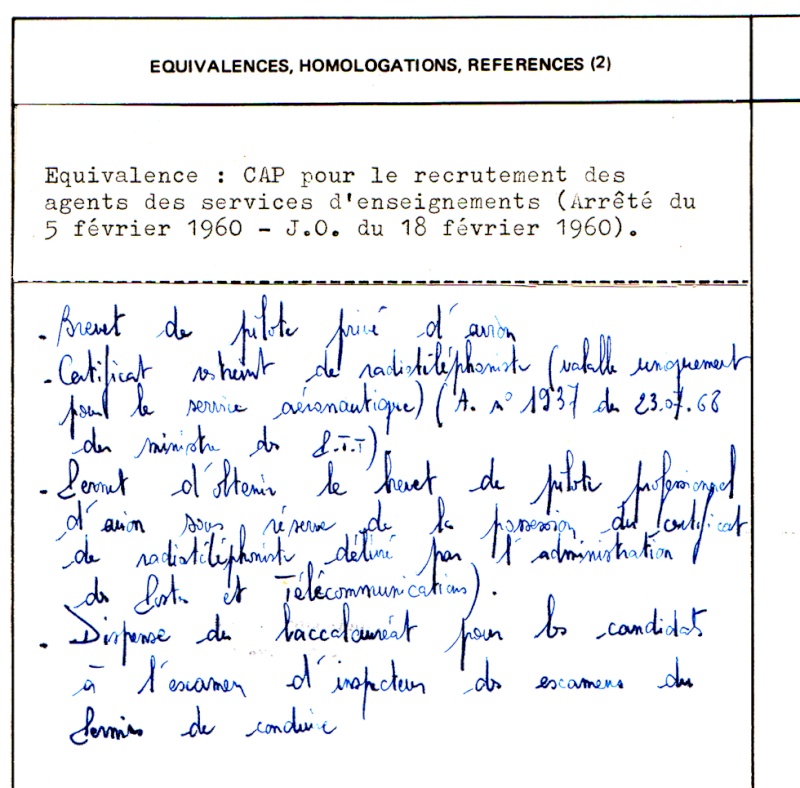 EQUIVALENCES, HOMOLOGATIONS, REFERENCES (2)
Equivalence : CAP pour le recrutement des
agents des services d'enseignements (Arrêté du
5 février 1960 - J.O. du 18 février 1960).
- Brevet de pilote privé d'avion
- Certificat restreint de radiotéléphoniste (valable uniquement
pour le service aéronautique) (A. n° 1937 du 23.07.68
du ministre des P.T.T)
- Permet d'obtenir le brevet de pilote professionnel
d'avion sous réserve de la possession du certificat
de radiotéléphoniste délivré par l'administration
des Postes et Télécommunications).
- Dispense du baccalauréat pour les candidats
à l'examen d'inspecteur des examens du
Permis de conduire